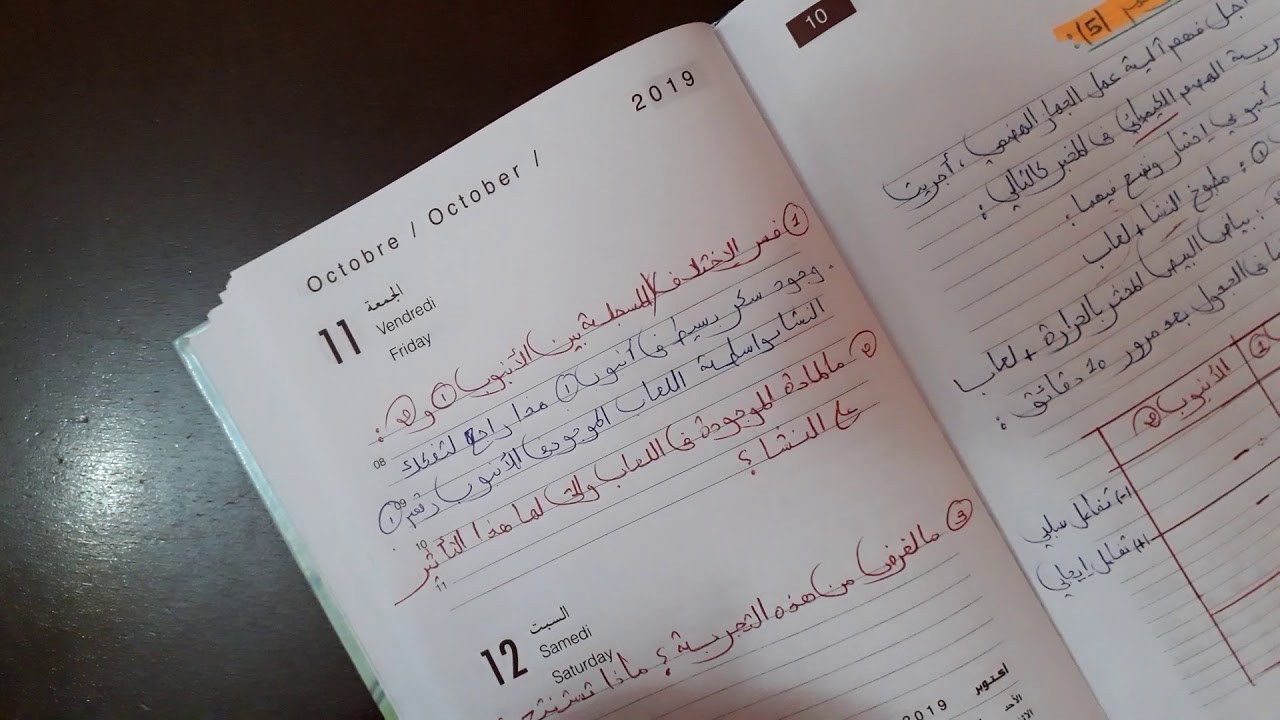 10
(5):
أجل فهم آلية عمل الجهاز الهضمي، أجريت
الهضم الكيميائي في المخبر كالتالي:
أنبوبي إختبار وضع فيهما.
①: مطبوخ النشا + لعاب
: بياض البيض المخثر بالحرارة + لعاب
في الجدول بعد مرور 10 دقائق:
الأنبوب ②
(-) تفاعل سلبي
(+) تفاعل إيجابي
2019
Octobre / October /
11
الجمعة
Vendredi
Friday
① فسر الاختلاف المسجلة بين الأنبوب ① و ②:
. وجود سكر بسيط في أنبوب ① هذا راجع لتفكك
08
النشا بواسطة اللعاب الموجود في الأنبوب رقم ①
09
② ما المادة الموجودة في اللعاب والتي لها هذا التأثير
10
على النشا؟
11
12
السبت
Samedi
Saturday
③ ما الغرض من هذه التجربة؟ ماذا تستنتج
أكتوبر
2019
الأحد